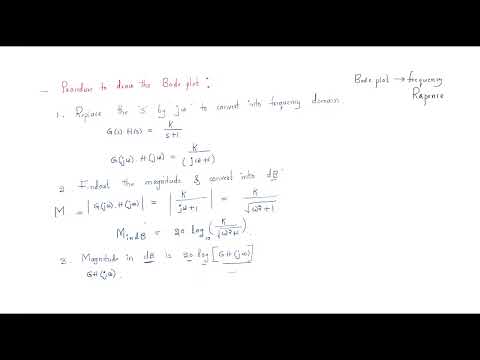 — Procedure to draw the Bode plot :
Bode plot → frequency
Reponse
1. Replace the 's' by jω to convert into frequency domain
G(s) H(s) = K / s+1
G(jω). H(jω) = K / (jω+1)
2. Find out the magnitude & convert into dB
M = |G(jω).H(jω)| = |K / jω+1| = K / √ω²+1
M in dB = 20 log₁₀ (K / √ω²+1).
3. Magnitude in dB is 20 log [GH(jω)]
GH(jω).